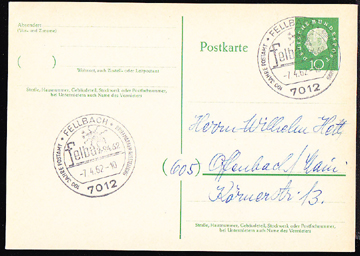 Absender:
Postkarte
DEUTSCHE BUNDESPOST
10
FELLBACH
100 JAHRE POSTAMT
-7.4.62
7012
Wohnort, auch Zustell- oder Leitpostamt
Straße, Hausnummer, Gebäudeteil, Stockwerk oder Postfachnummer,
bei Untermietern auch Name des Vermieters
FELLBACH
100 JAHRE POSTAMT
-7.4.62-10
7012
Herrn Wilhelm Hott
(605) Offenbach/Main
Körnerstr. 13.
Straße, Hausnummer, Gebäudeteil, Stockwerk oder Postfachnummer,
bei Untermietern auch Name des Vermieters